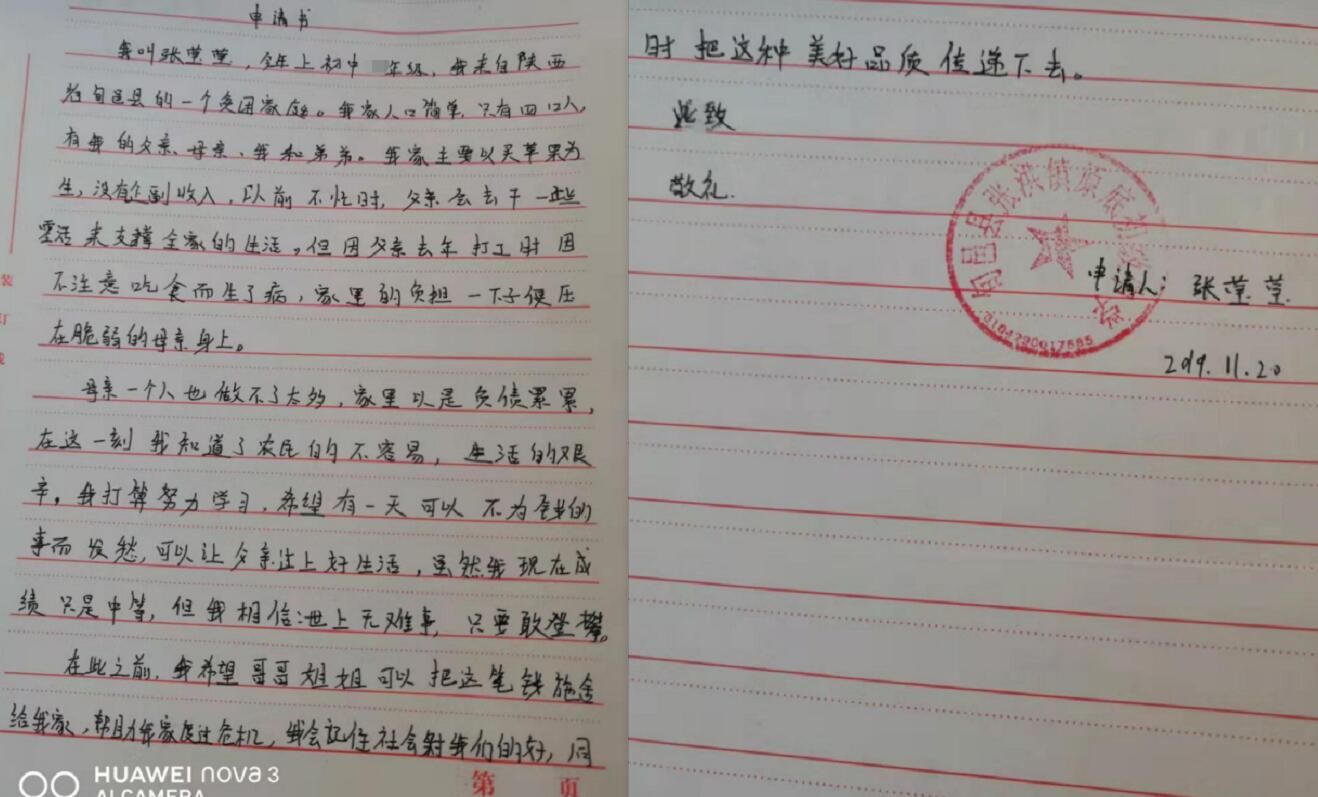 申请书
我叫张莹莹，今年上初中 年级，我来自陕西
省旬邑县的一个贫困家庭。我家人口简单，只有四口人，
有我的父亲、母亲、我和弟弟。我家主要以买苹果为
生，没有 副收入，以前不忙时，父亲会去干一些
零活来支撑全家的生活。但因父亲去年打工时因
不注意吃食而生了病，家里的负担一下子便压
在脆弱的母亲身上。
母亲一个人也做不了太多，家里以是负债累累，
在这一刻我知道了农民的不容易，生活的艰
辛，我打算努力学习，希望有一天可以不为 的
事而发愁，可以让父亲过上好生活，虽然我现在成
绩只是中等，但我相信:世上无难事，只要敢登攀。
在此之前，我希望哥哥姐姐可以把这笔钱施舍
给我家，帮助我家度过危机，我会记住社会对我们的好，同
第 页
装
订
线
HUAWEI nova 3
AI CAMERA
时把这种美好品质传递下去。
此致
敬礼.
旬邑县张洪镇原底初级
6104290017585
申请人：张莹莹
2019.11.20